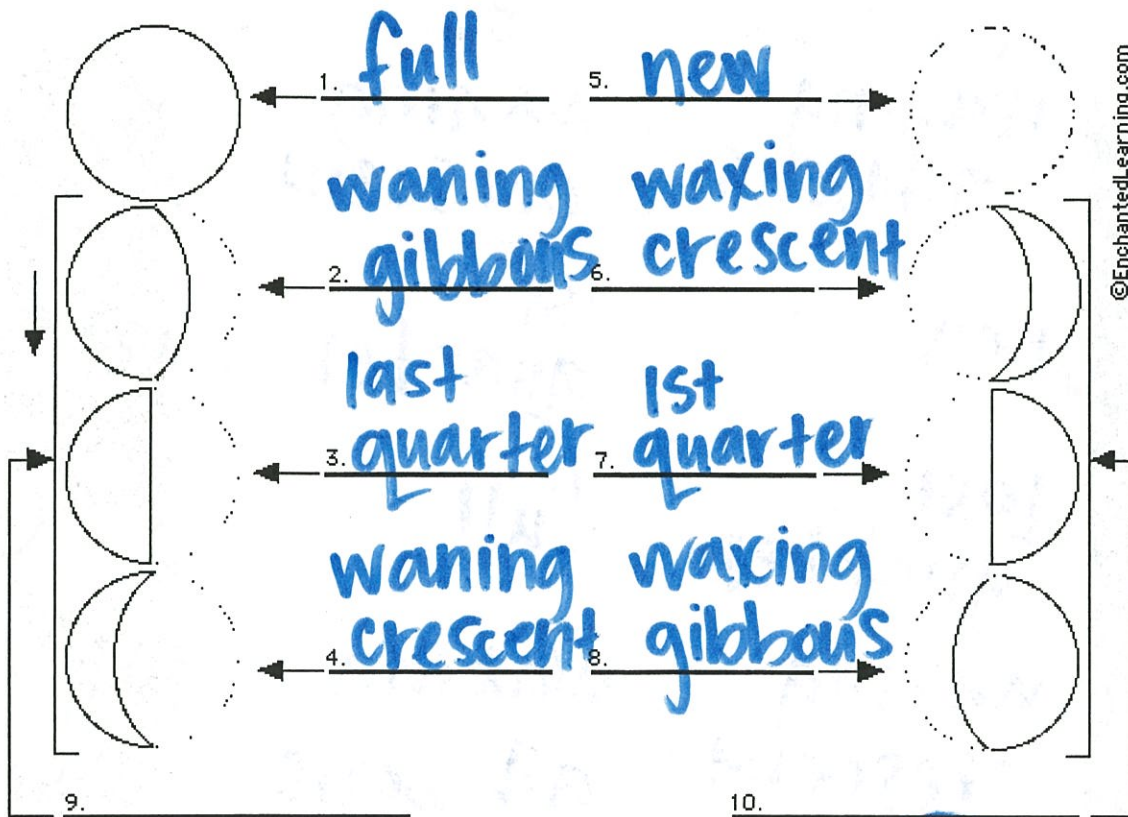 1. full
5. new
waning
2. gibbous
waxing
6. crescent
last
3. quarter
1st
7. quarter
waning
4. crescent
waxing
8. gibbous
9.
10.
©EnchantedLearning.com